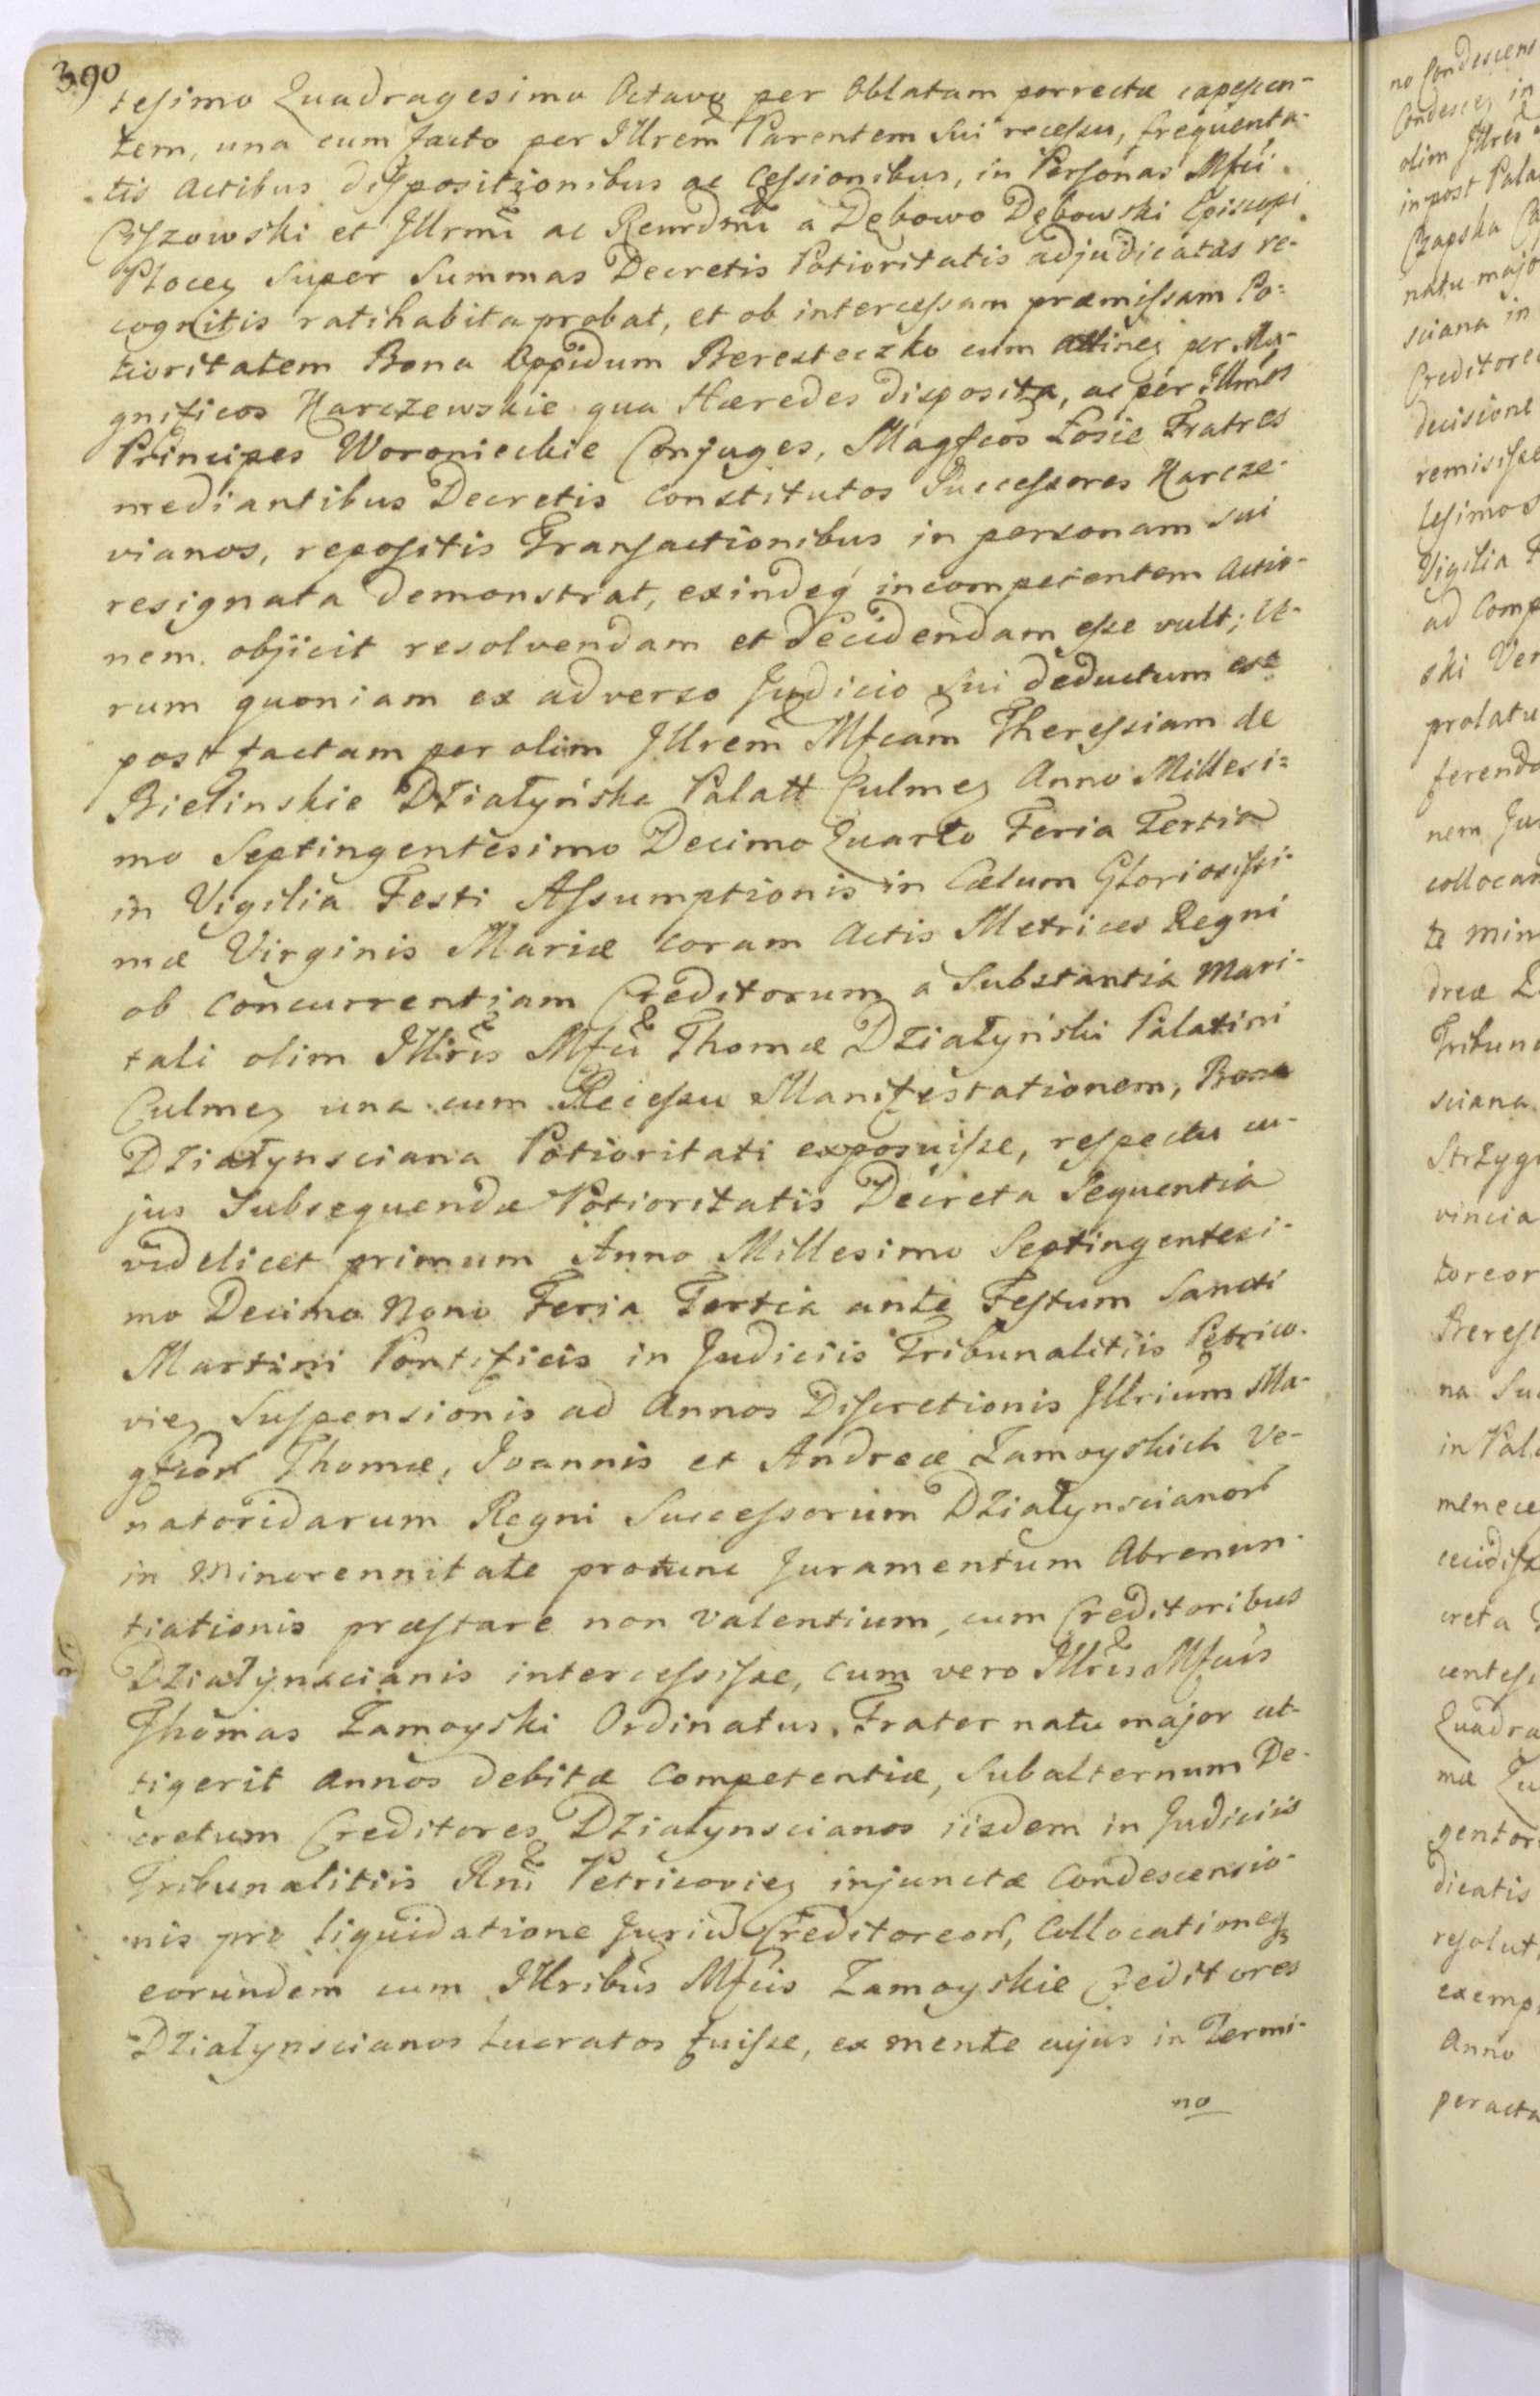 390
tesimo Quadragesimo Octavo per Oblatam porrectæ capescen-
tem, una cum facto per Illrem Parentem Sui recessu, frequenta-
tis Actibus dispositionibus ac Cessionibus, in Personas Mfci
Ciszowski et Illrmi ac Reurdmi a Dębowo Dębowski Episcopi
Plocen Super Summas Decretis Potioritatis adjudicatas re-
cognitis ratihabita probat, et ob intercessam præmissam Po-
tioritatem Bona Oppidum Beresteczko cum attinen per Ma-
gnificos Harczewskie qua Hæredes disposita, ac per Illmos
Principes Woronieckie Conjuges, Magfcos Łosie Fratres
mediantibus Decretis constitutos Successores Harcze-
vianos, repositis Transactionibus in personam sui
resignata demonstrat, exindeq incompetentem Actio-
nem objicit resolvendam et decidendam esse vult; Ve-
rum quoniam ex adverso Judicio sui deductum est
post factam per olim Illrem Mfcam Theressiam de
Bielinskie Działyńska Palatt Culmen Anno Millesi-
mo Septingentesimo Decimo Quarto Feria Tertia
in Vigilia Festi Assumptionis in Cælum Gloriosissi-
mæ Virginis Mariæ coram Actis Metrices Regni
ob concurrentiam Creditorum a Substantia Mari-
tali olim Illris Mfci Thomæ Działyński Palatini
Culmen una cum Recessu Manifestationem, Bona
Działynsciana Potioritati exposuisse, respectu cu-
jus Subsequendæ Potioritatis Decreta Sequentia
videlicet primum Anno Millesimo Septingentesi-
mo Decimo Nono Feria Tertia ante Festum Sancti
Martini Pontificis in Judiciis Tribunalitiis Petrico-
vien Suspensionis ad Annos Discretionis Illrium Ma-
gfcor Thomæ, Joannis et Andreæ Zamoyskich Ve-
natoridarum Regni Successorum Działynscianor
in Minorennitate protunc Juramentum Abrenun-
tiationis præstare non valentium, cum Creditoribus
Działynscianis intercessisse, cum vero Illris Mfcus
Thomas Zamoyski Ordinatus Frater natu major at-
tigerit annos debitæ Competentiæ, Subalternum De-
cretum Creditores Działynscianos iisdem in Judiciis
Tribunalitiis Rni Petricovien injunctæ Condescensio-
nis pro liquidatione Jurium Creditoreor, Collocationeq
eorundem cum Illribus Mfcis Zamoyskie Creditores
Działynscianos lucratos fuisse, ex mente cujus in Termi-
no